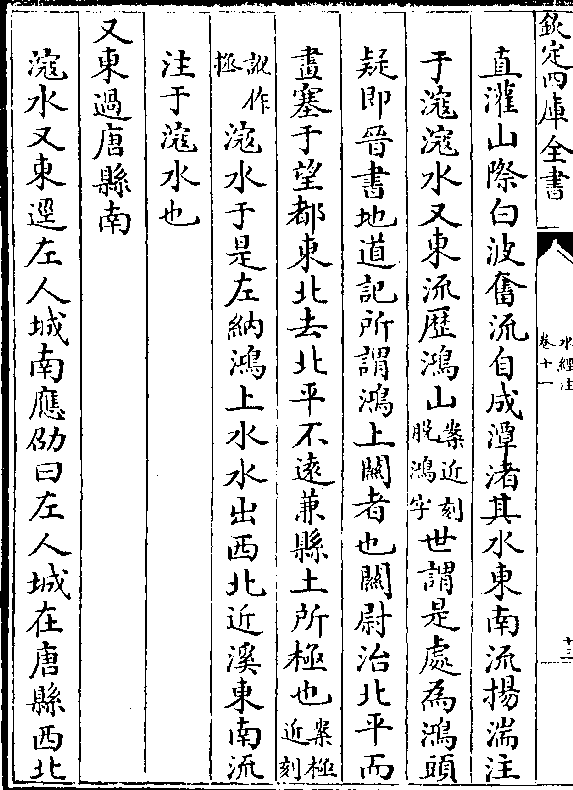 欽定四庫全書
水經注
卷十一
十三
直灌山際白波奮流自成潭渚其水東南流揚湍注
于滱滱水又東流歴鴻山案近刻脱鴻字世謂是處為鴻頭
疑即晉書地道記所謂鴻上關者也關尉治北平而
畫塞于望都東北去北平不遠兼縣土所極也案極近刻
訛作拯滱水于是左納鴻上水水出西北近溪東南流
注于滱水也
又東過唐縣南
滱水又東逕左人城南應劭曰左人城在唐縣西北